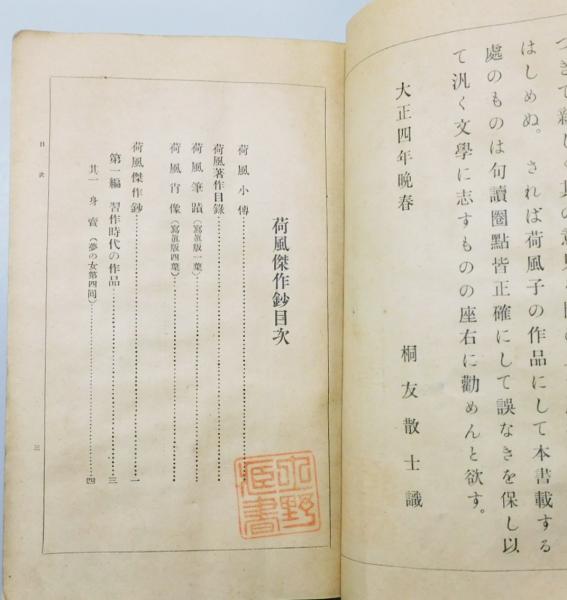 はしめぬ。されば荷風子の作品にして本書載する
處のものは句讀圈點皆正確にして誤なきを保し以
て汎く文學に志すものの座右に勸めんと欲す。
大正四年晩春
桐友散士識
荷風傑作鈔目次
荷風小傳
荷風著作目錄
荷風筆蹟(寫眞版一葉)
荷風肖像(寫眞版四葉)
荷風傑作鈔……一
第一編 習作時代の作品……三
其一 身賣(夢の女第四囘)……四
目次
三
野
書